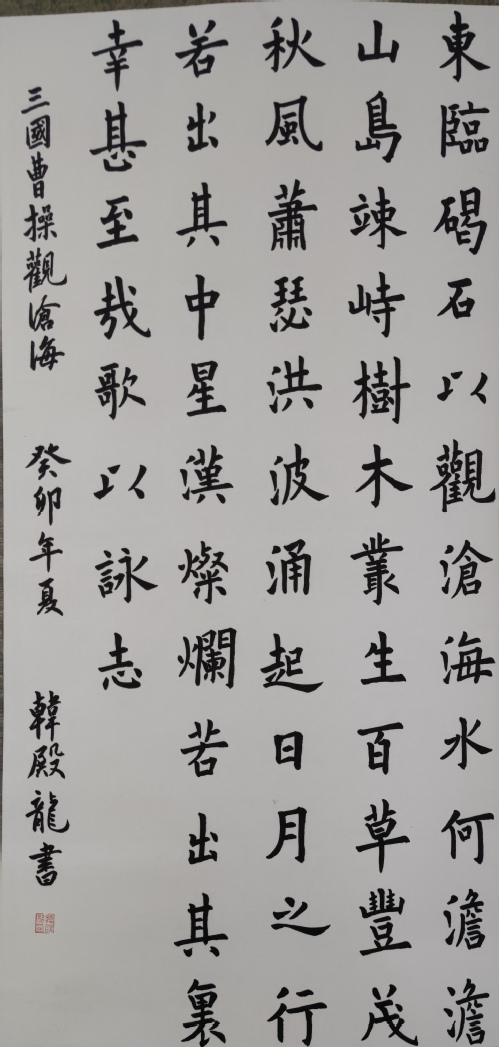 東臨碣石以觀滄海水何澹澹
山島竦峙樹木叢生百草豐茂
秋風蕭瑟洪波涌起日月之行
若出其中星漢燦爛若出其裏
幸甚至哉歌以詠志
三國曹操觀滄海 癸卯年夏 韓殿龍書